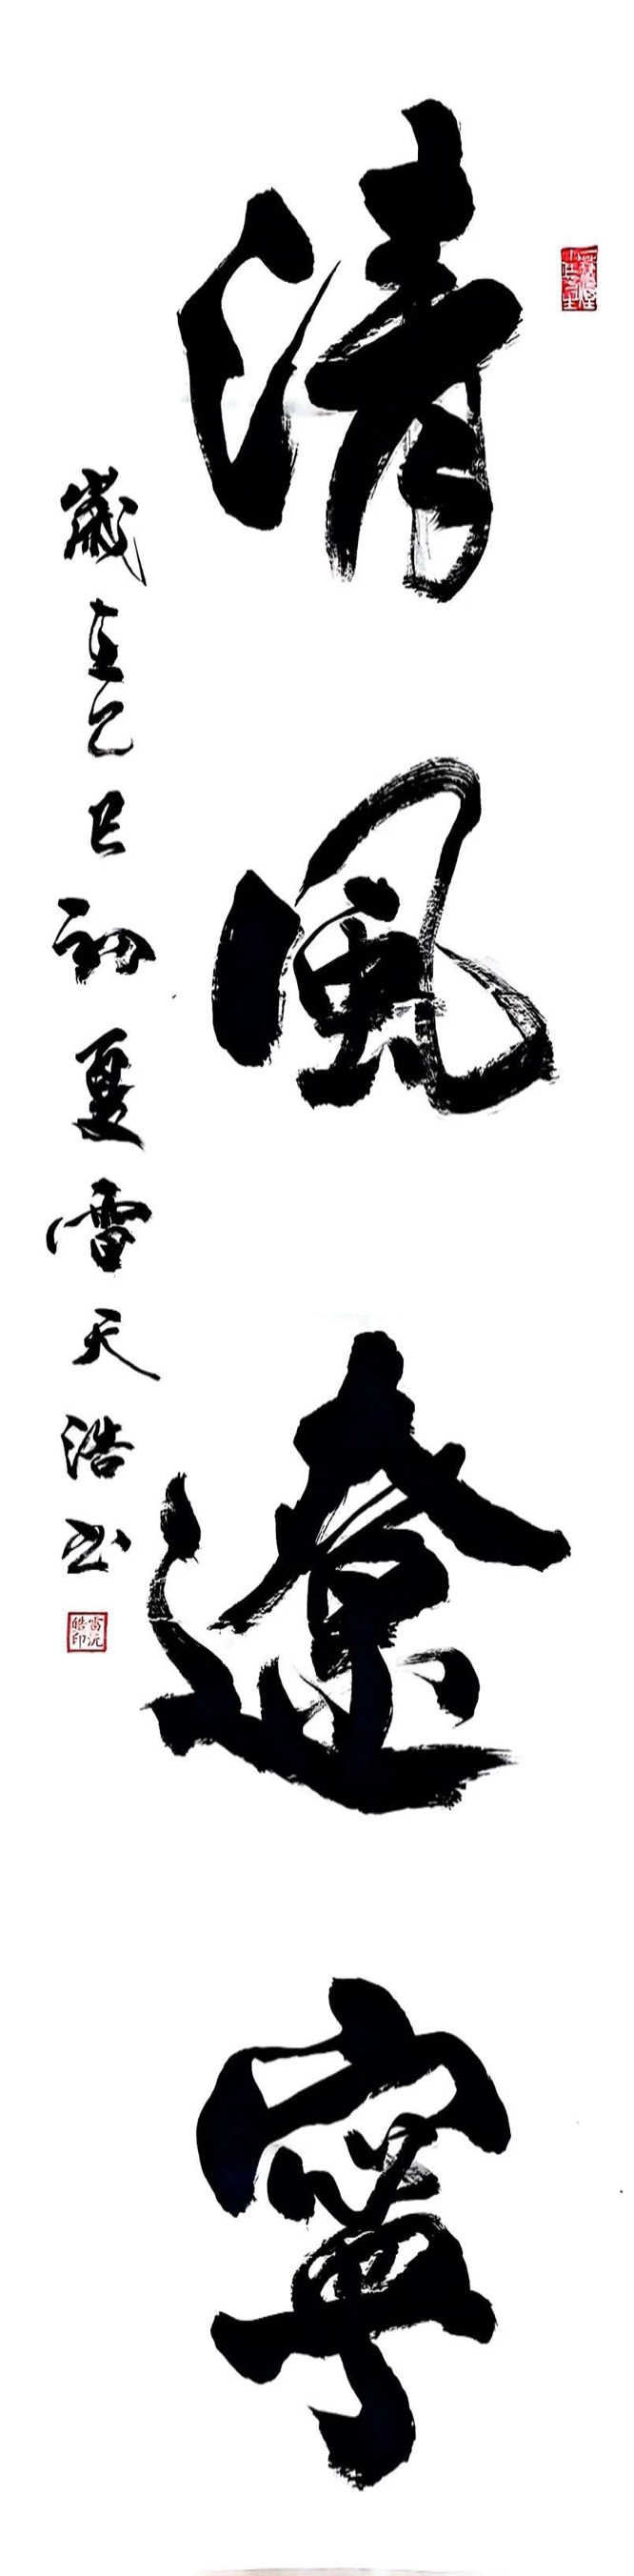 清風遼寧
歲在乙巳初夏雷天浩书